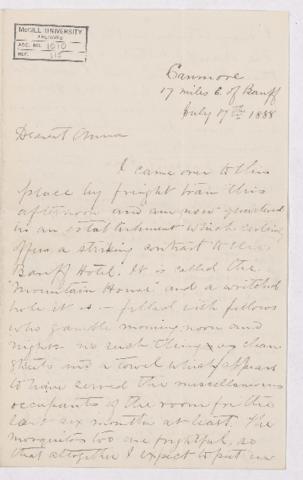 McGILL UNIVERSITY
ARCHIVES
ACC. NO. 1010
REF.
Canmore
17 miles E. of Banff
July 17th 1888
Dearest Anna
I came over to this
place by freight train this
afternoon and am now quartered
in an establishment which certainly
offers a striking contrast to the
Banff Hotel. It is called the
"Mountain House" and a wretched
hole it is - filled with fellows
who gamble morning, noon and
night - no such thing as clean
sheets and a towel what appears
to have served the miscellaneous
occupants of the room for the
last six months at least. The
mosquitos too are frightful, so
that altogether I expect to put in